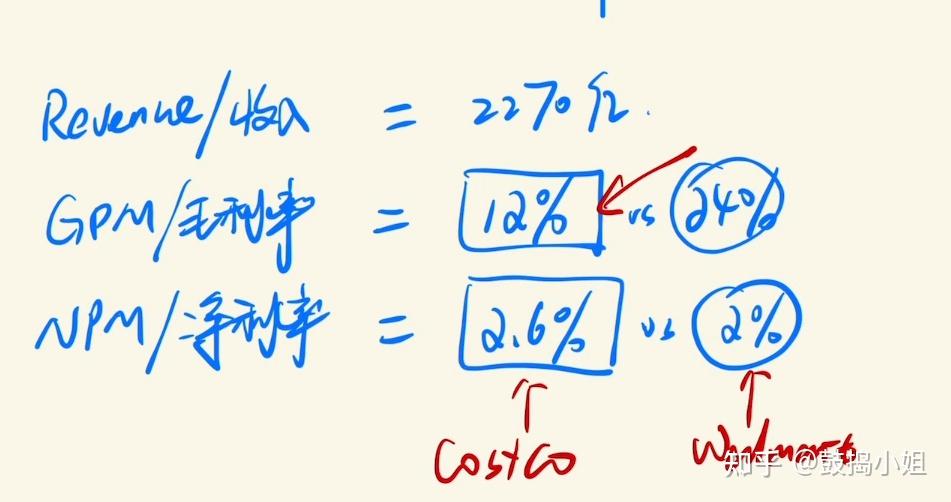 Revenue/收入 = 2270亿.
GPM/毛利率 = 12% vs 24%
NPM/净利率 = 2.6% vs 2%
Costco Walmart
知乎 @鼓捣小姐